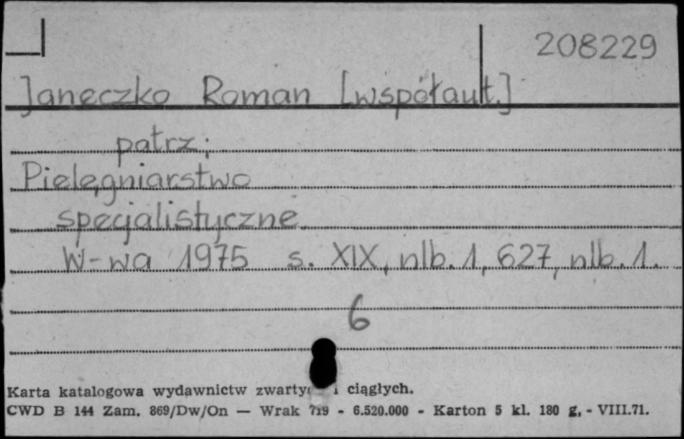 208229
Janeczko Roman [współaut.]
patrz:
Pielęgniarstwo
specjalistyczne.
W-wa 1975 s. XIX, nlb. 1, 627, nlb. 1.
6
Karta katalogowa wydawnictw i ciągłych.
CWD B 144 Zam. 869/Dw/On — Wrak 719 - 6.520.000 - Karton 5 kl. 180 g. - VIII.71.